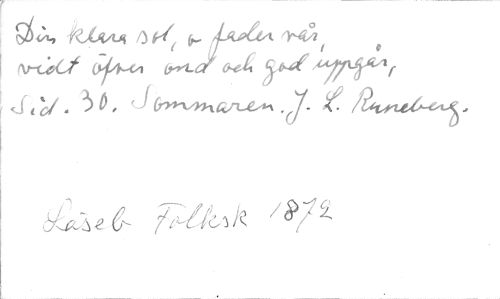 Din klara sol, o fader vår,
vidt öfver ond och god uppgår,
Sid. 30. Sommaren. J. L. Runeberg.
Läseb Folksk 1872